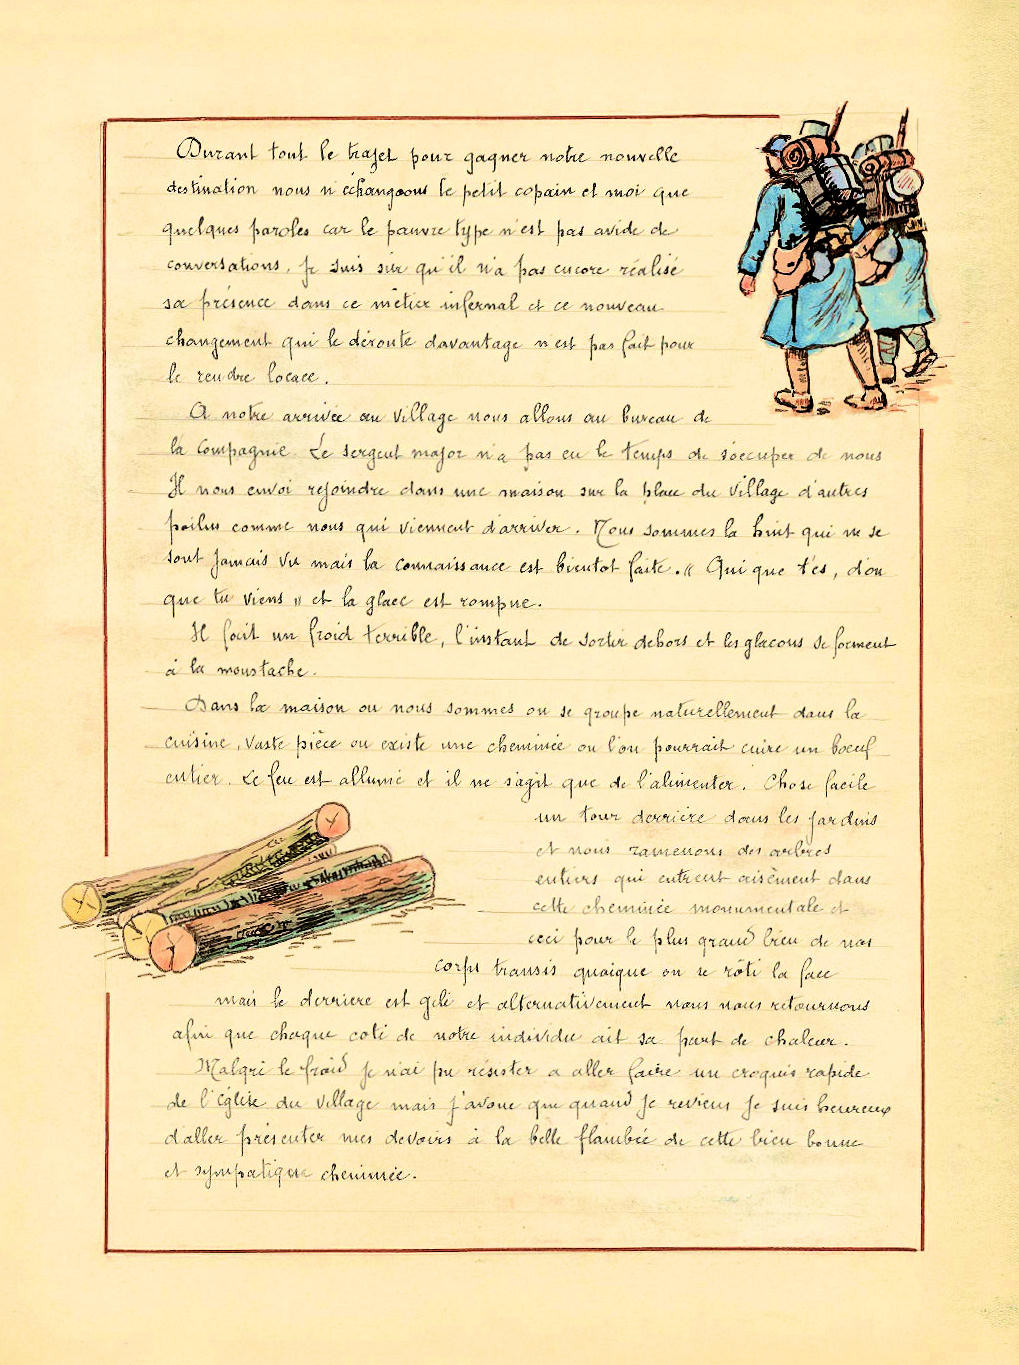 Durant tout le trajet pour gagner notre nouvelle
destination nous n'échangeons le petit copain et moi que
quelques paroles car le pauvre type n'est pas avide de
conversations. Je suis sûr qu'il n'a pas encore réalisé
sa présence dans ce métier infernal et ce nouveau
changement qui le déroute davantage n'est pas fait pour
le rendre locace.
A notre arrivée au village nous allons au bureau de
la Compagnie. Le sergent major n'a pas eu le temps de s'occuper de nous
Il nous envoi rejoindre dans une maison sur la place du village d'autres
poilus comme nous qui viennent d'arriver. Nous sommes la huit qui ne se
sont jamais vu mais la connaissance est bientot faite. « Qui que t'es, d'ou
que tu viens » et la glace est rompue.
Il fait un froid terrible, l'instant de sortir dehors et les glacons se forment
à la moustache.
Dans la maison ou nous sommes on se groupe naturellement dans la
cuisine, vaste pièce ou existe une cheminée ou l'on pourrait cuire un boeuf
entier. Le feu est allumé et il ne s'agit que de l'alimenter. Chose facile
un tour derrière dans les jardins
et nous ramenons des arbres
entiers qui entrent aisément dans
cette cheminée monumentale et
ceci pour le plus grand bien de nos
corps transis quoique on se rôti la face
mais le derriere est gelé et alternativement nous nous retournons
afin que chaque coté de notre individu ait sa part de chaleur.
Malgré le froid je n'ai pu résister a aller faire un croquis rapide
de l'Église du village mais j'avoue que quand je reviens je suis heureux
d'aller présenter mes devoirs à la belle flambée de cette bien bonne
et sympatique cheminée.